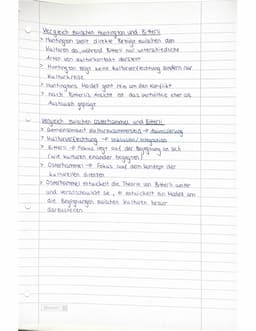 Vergleich zwischen Huntington und Bitterli
> Huntington stellt direkte Bezüge zwischen den
Kulturen da, während Bitterli nur unterschiedliche
Arten von Kulturkontakt darstellt
> Huntington zeigt keine Kulturverflechtung sondern nur
Kulturkreise
> Huntingtons Modell geht nie um den Konflikt
> nach Bitterli's Ansicht ist das Verhältnis eher als
Austausch geprägt
Vergleich zwischen Osterhammel und Bitterli
> Gemeinsamkeit Kulturzusammenstoß →
> Kulturverflechtung → Inklusion/Integration
> Bitterli → Fokus liegt auf der Begegnung an sich
(wie Kulturen einander begegnen)
> Osterhammel → Fokus auf dem Konzept der
kulturellen Grenzen
> Osterhammel entwickelt die Theorie von Bitterli weiter
und veranschaulicht sie, + entwickelt ein Modell um
die Begegnungen zwischen Kulturen besser
darzustellen